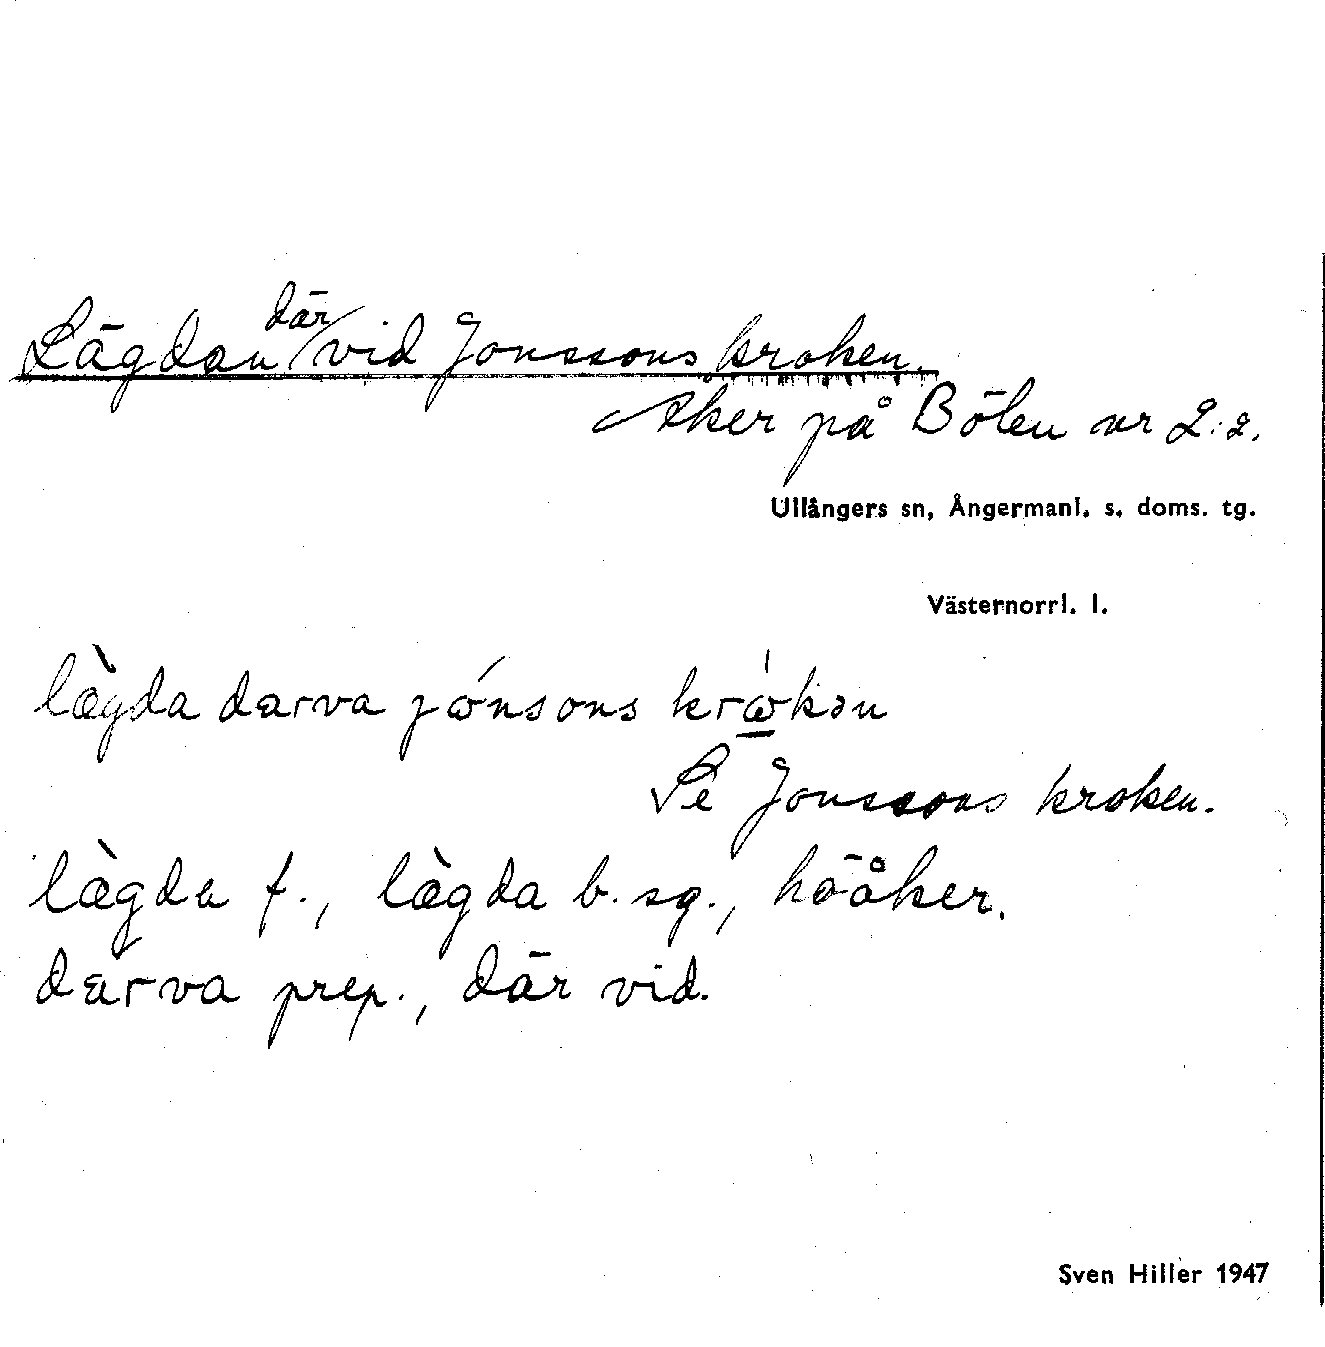 Lägdan där vid Jonssons kroken.
Åker på Bölen nr 2:2.
Ullångers sn, Ångermanl. s. doms. tg.
Västernorrl. l.
læ̀gda darva jǿnsons krώ̲kən
Se Jonssons kroken.
læ̀gda f., læ̀gda b. sg., höåker.
darva prep., där vid.
Sven Hiller 1947